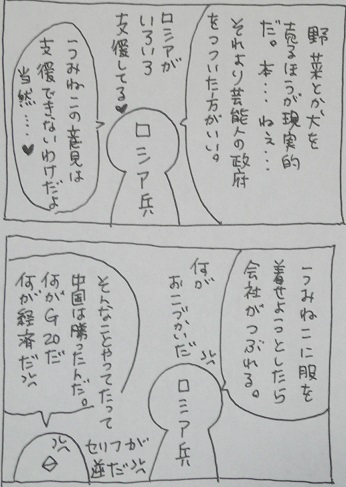 野菜とか犬を
売るほうが現実的
だ。本…ねえ…
それより芸能人の政府
をつついた方がいい。
ロシアが
いろいろ
支援してる♥
ロシア兵
つみねこの意見は
支援できないわけだよ
当然…♥
つみねこに服を
着せようとしたら
会社がつぶれる。
何が
おこづかいだ
ロシア兵
そんなことやってたって
中国は勝ったんだ。
何がG20だ
何が経済だ
セリフが
逆だ